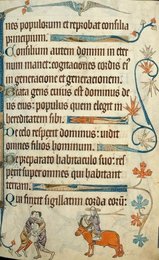 tes populorum et reprobat consilia
principum.
Consilium autem domini in eter
num manet: cogitationes cordis ei
in generacione et generacionem.
Beata gens cuius est dominus de
us eius: populus quem elegit in
hereditatem sibi.
De celo respexit dominus: vidit
omnes filios hominum.
De preparato habitaculo suo: res
pexit super omnes qui habitant
terram.
Qui finxit sigillatim corda eorum: